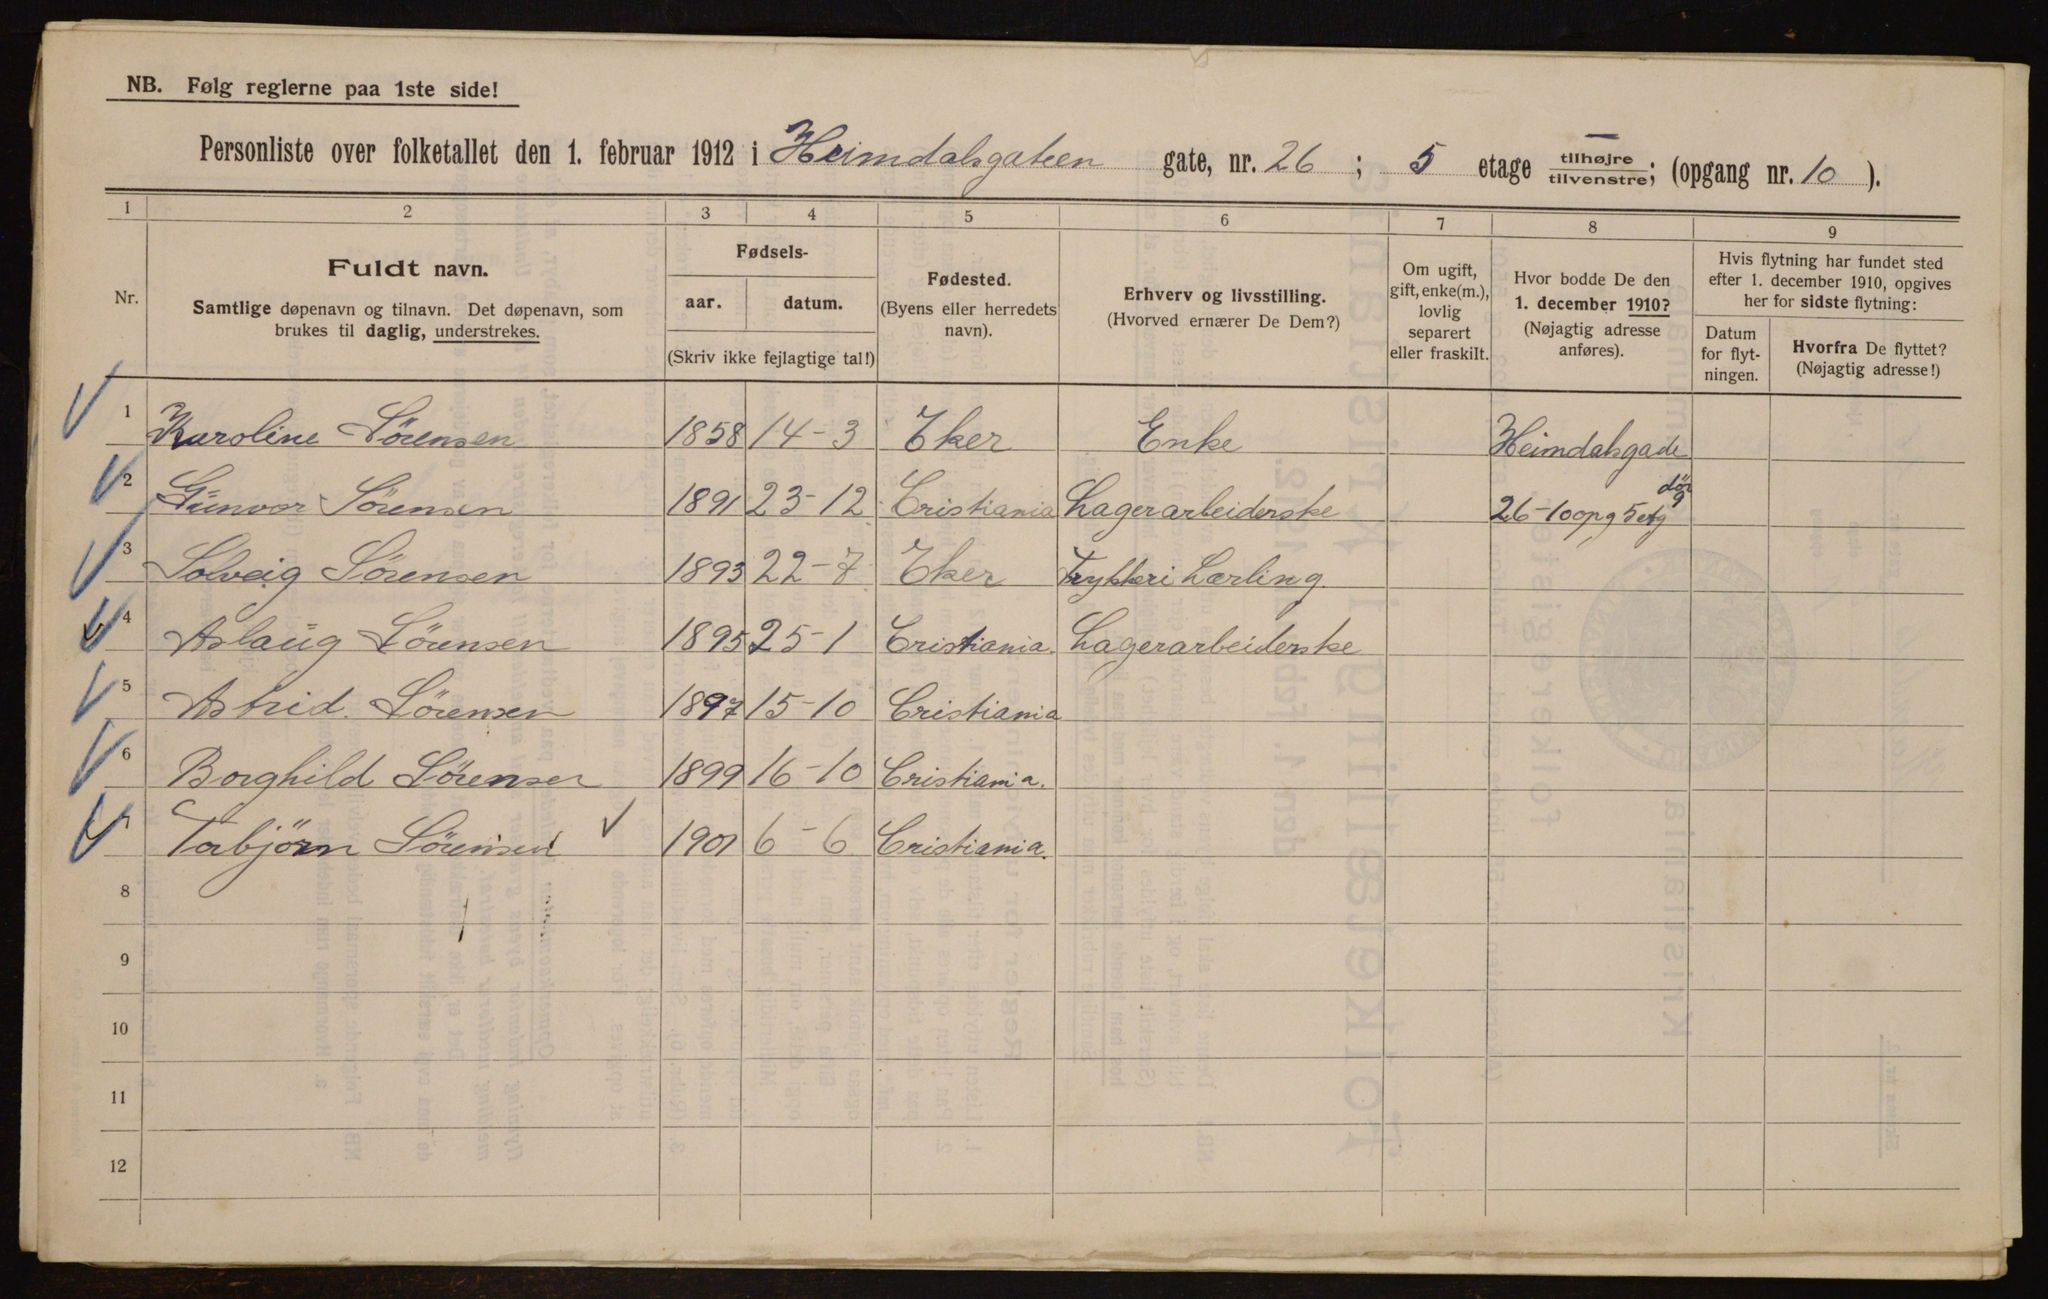 NB. Følg reglerne paa 1ste side!
Personliste over folketallet den 1. februar 1912 i Heimdalsgateen gate, nr. 26 ; 5 etage tilhøjre / tilvenstre ; (opgang nr. 10 ).
1 2 3 4 5 6 7 8 9
Nr.
Fuldt navn.
Samtlige døpenavn og tilnavn. Det døpenavn, som
brukes til daglig, understrekes.
Fødsels-
aar. datum.
(Skriv ikke fejlagtige tal!)
Fødested.
(Byens eller herredets
navn).
Erhverv og livsstilling.
(Hvorved ernærer De Dem?)
Om ugift,
gift, enke(m.),
lovlig
separert
eller fraskilt.
Hvor bodde De den
1. december 1910?
(Nøjagtig adresse
anføres).
Hvis flytning har fundet sted
efter 1. december 1910, opgives
her for sidste flytning:
Datum
for flyt-
ningen.
Hvorfra De flyttet?
(Nøjagtig adresse!)
1 Karoline Sørensen 1858 14-3 Eker Enke Heimdalsgade
2 Günvor Sörensen 1891 23-12 Cristiania Lagerarbeiderske 26-10opg 5etg dør 9
3 Solveig Sörensen 1893 22-7 Eker Trykkeri Lærling
4 Aslaüg Sörensen 1895 25-1 Cristiania. Lagerarbeiderske
5 Astrid. Sörensen 1897 15-10 Cristiania
6 Borghild Sörensen 1899 16-10 Cristiania.
7 Torbjörn Sörensen 1901 6-6 Cristiania.
8
9
10
11
12